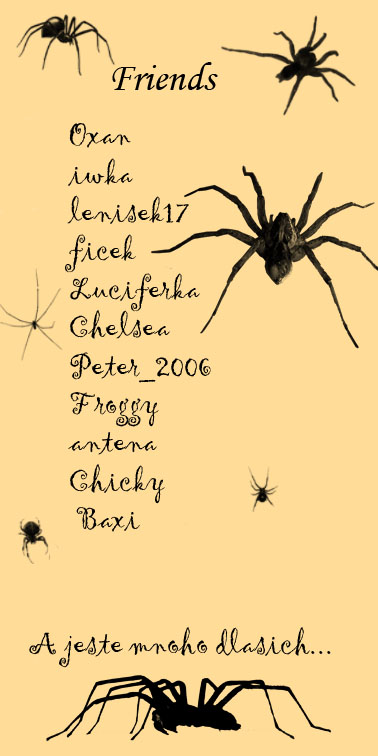 Friends
Oxan
iwka
lenisek17
ficek
Luciferka
Chelsea
Peter_2006
Froggy
antena
Chicky
Baxi
A jeste mnoho dlasich...